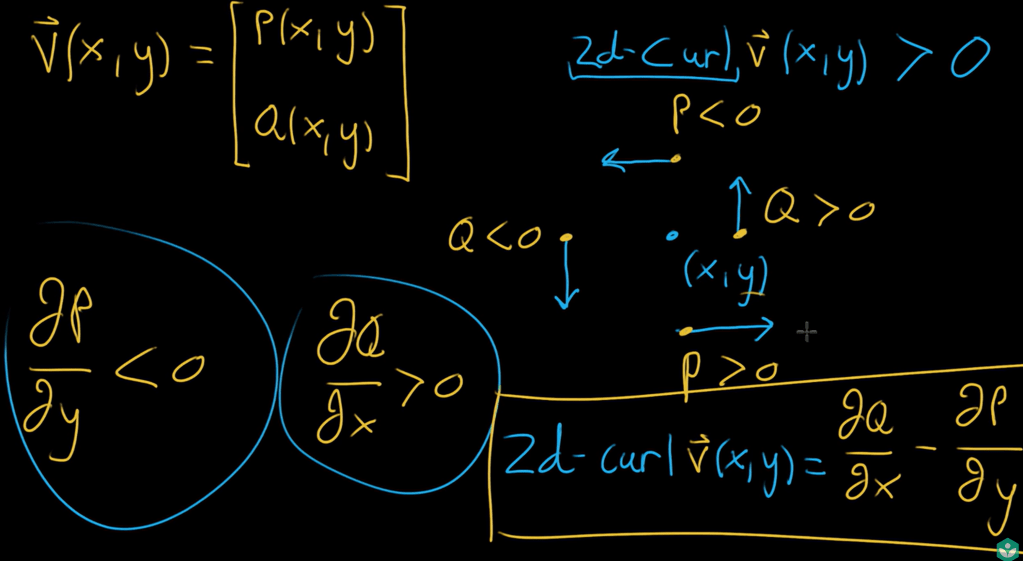 v⃗(x,y) = [P(x,y)
Q(x,y)]
2d-Curl v⃗(x,y) > 0
P<0
Q>0
Q<0
(x,y)
P>0
∂P/∂y < 0
∂Q/∂x > 0
2d-curl v⃗(x,y) = ∂Q/∂x - ∂P/∂y